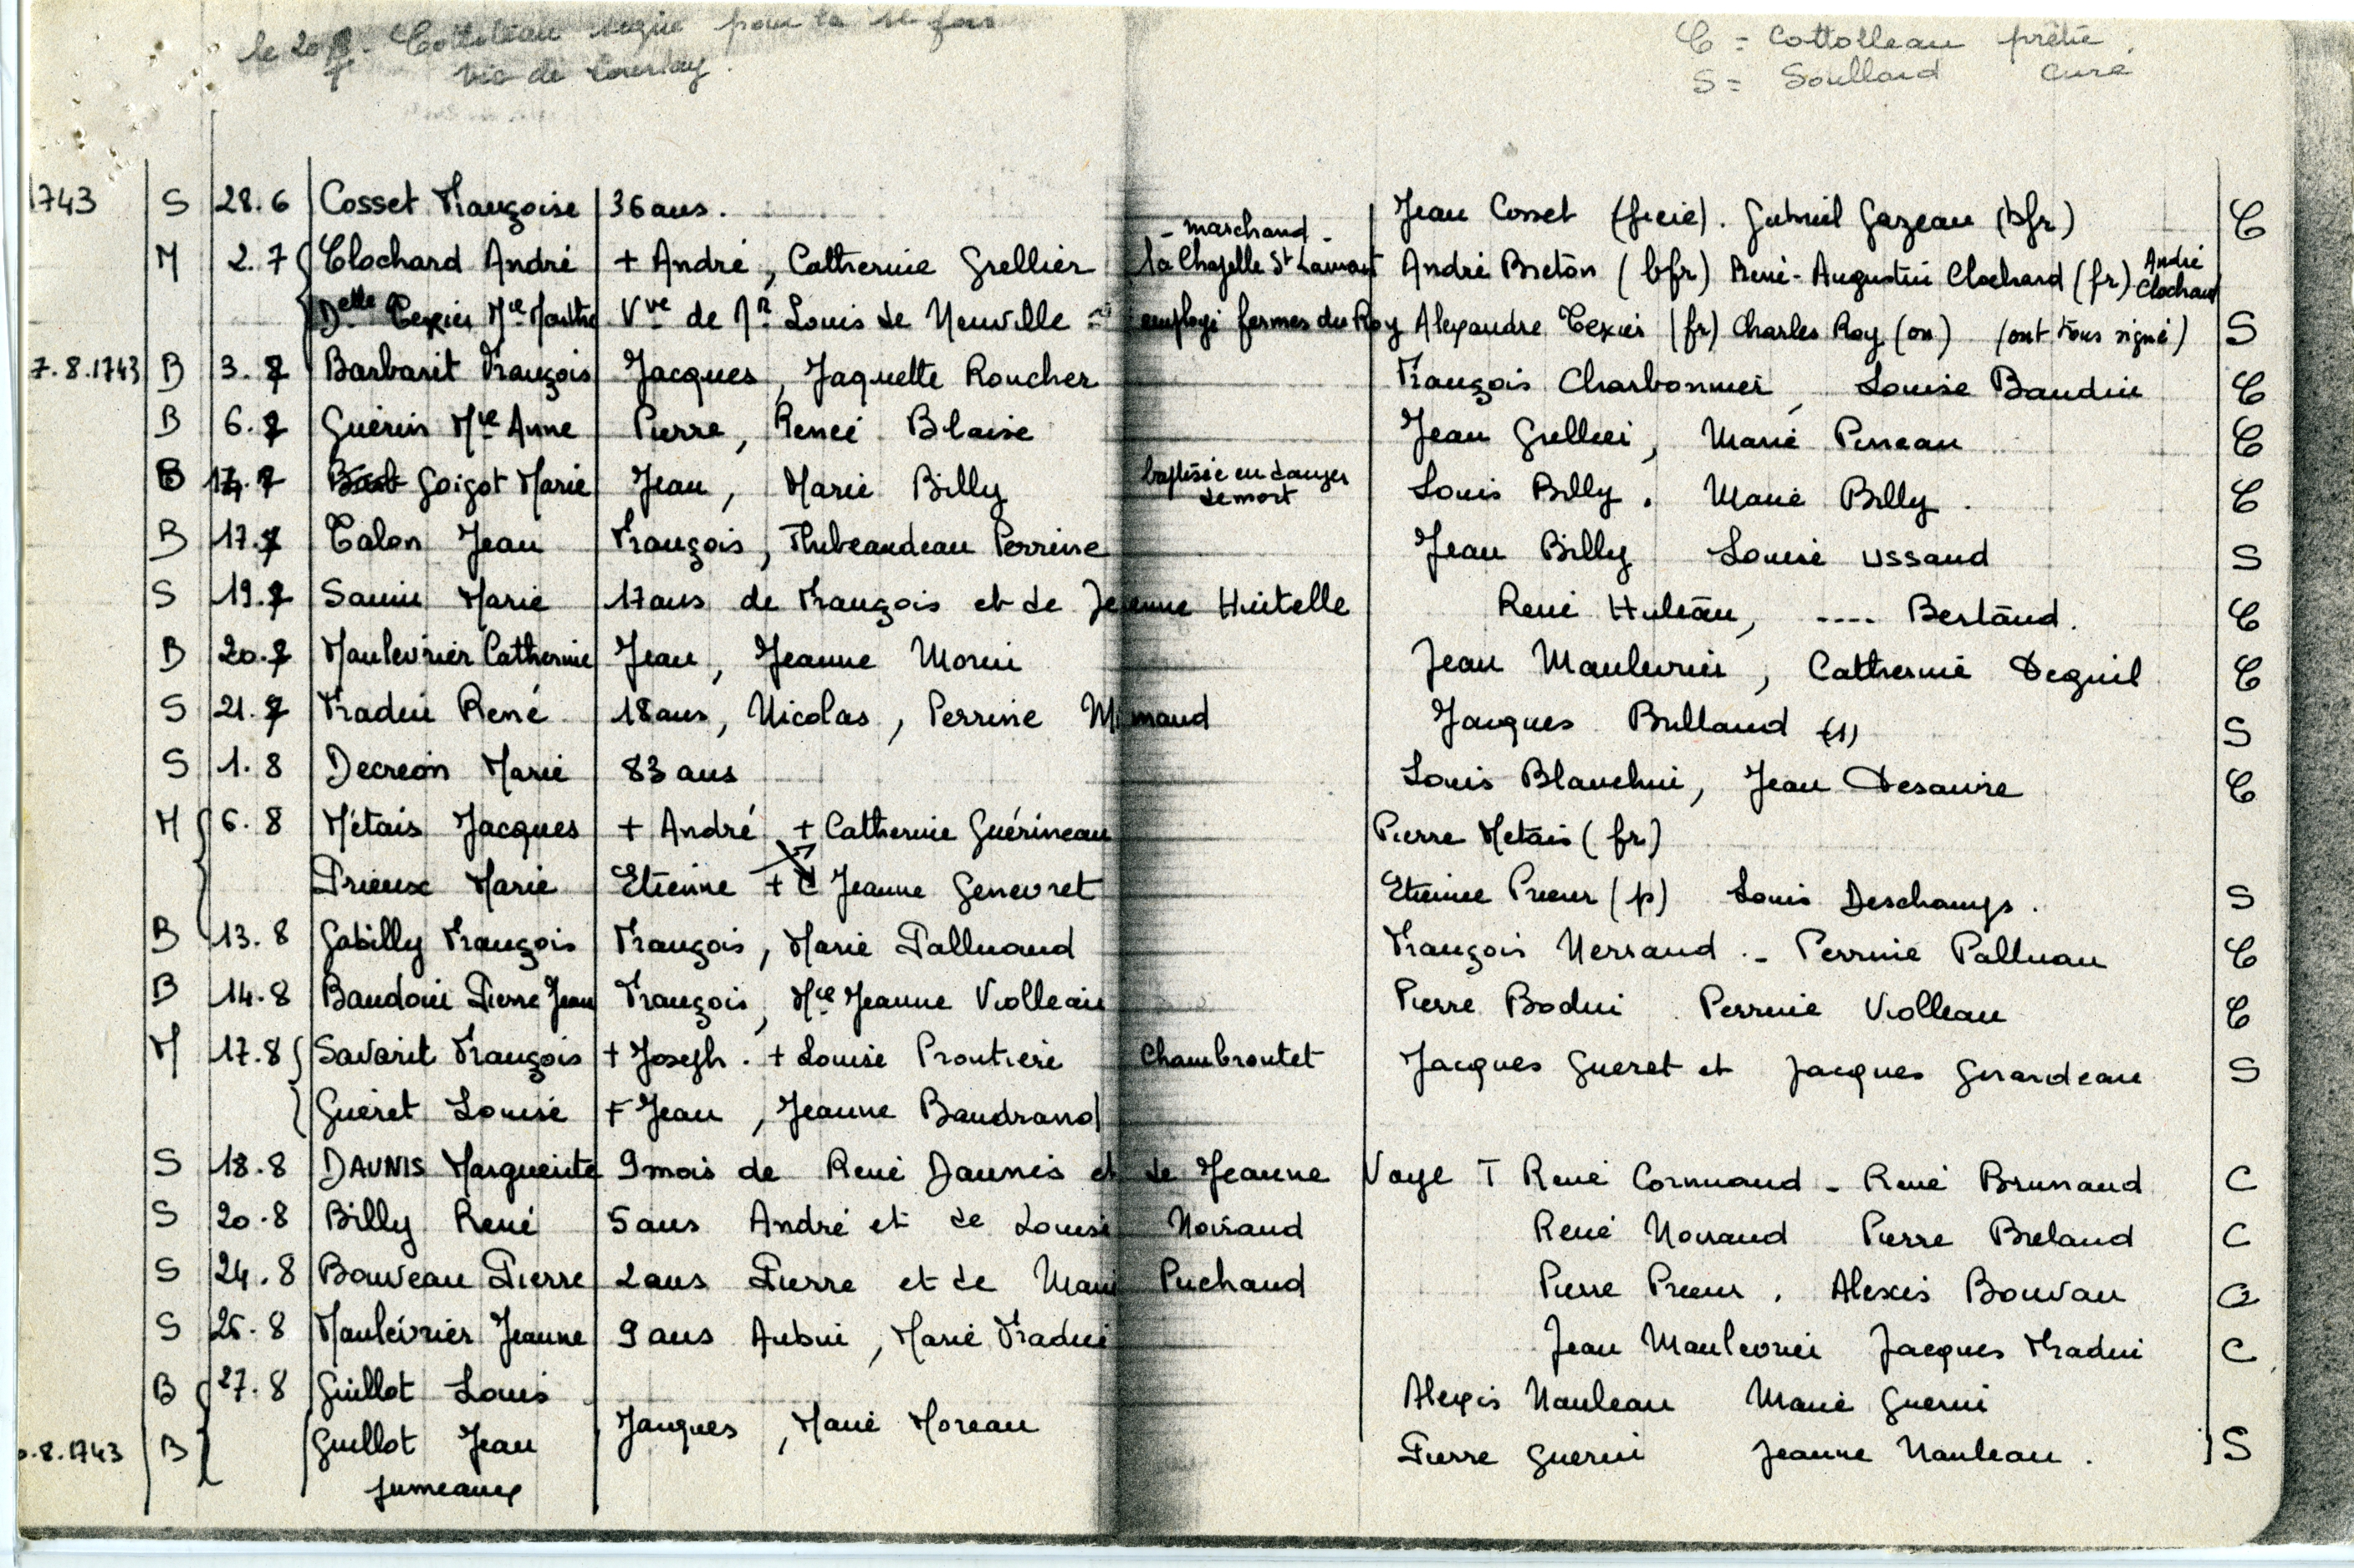 le 20 . Cottoleau signe pour la 1e fois
vic de Courlay.
C = Cottolleau prêtre.
S = Soullard curé
1743 S 28.6 Cosset Françoise 36 ans. Jean Cosset (frère). Gabriel Gazeau (bfr) C
- marchand -
M 2.7 Clochard André + André, Catherine Grellier la Chapelle St Laurent André Breton (bfr) René-Augustin Clochard (fr) André Clochard
Delle Texier Mie Marthe Vve de Mr Louis de Neuville employé fermes du Roy Alexandre Texier (fr) Charles Roy (on) (ont tous signé) S
7.8.1743 B 3.7 Barbarit François Jacques, Jaquette Roucher François Charbonnier, Louise Baudin C
B 6.7 Guérin Mie Anne Pierre, Renée Blaise Jean Grellier, Marie Pineau C
B 14.7 Goigot Marie Jean, Marie Billy baptisée en danger de mort Louis Billy. Marie Billy. C
B 17.7 Talon Jean François, Thibeaudeau Perrine Jean Billy Louise Ussaud S
S 19.7 Sanin Marie 17 ans de François et de Jeanne Huitelle René Huleau, .... Bertaud. C
B 20.7 Maulevrier Catherine Jean, Jeanne Morin Jean Maulevrier, Catherine Deguil C
S 21.7 Fradin René 18 ans, Nicolas, Perrine Mimaud Jacques Brillaud (1) S
S 1.8 Decreon Marie 83 ans Louis Blanchin, Jean Desaivre C
M 6.8 Métais Jacques + André + Catherine Guérineau Pierre Metais (fr)
Prieux Marie Etienne + C Jeanne Genevret Etienne Prieur (p) Louis Deschamps. S
B 13.8 Gabilly François François, Marie Palluaud François Nerraud - Perrine Palluau C
B 14.8 Baudoin Pierre Jean François, Mie Jeanne Violleau Pierre Bodin Perrine Violleau C
M 17.8 Savarit François + Joseph. + Louise Proutiere Chambroutet Jacques Gueret et Jacques Girardeau S
Guéret Louise + Jean, Jeanne Baudrand
S 18.8 DAUNIS Marguerite 9 mois de René Daunis et de Jeanne Voye T René Cornuaud - René Brunaud C
S 20.8 Billy René 5 ans André et de Louise Noiraud René Noiraud Pierre Breland C
S 24.8 Bouveau Pierre 2 ans Pierre et de Marie Puchaud Pierre Prieur. Alexis Bouvau C
S 25.8 Maulévrier Jeanne 9 ans Aubin, Marie Fradin Jean Maulevrier Jacques Fradin C
B 27.8 Guillot Louis Alexis Nauleau Marie Guerin
Jacques, Marie Moreau
.8.1743 B Guillot Jean Pierre Guerin Jeanne Nauleau. S
jumeaux